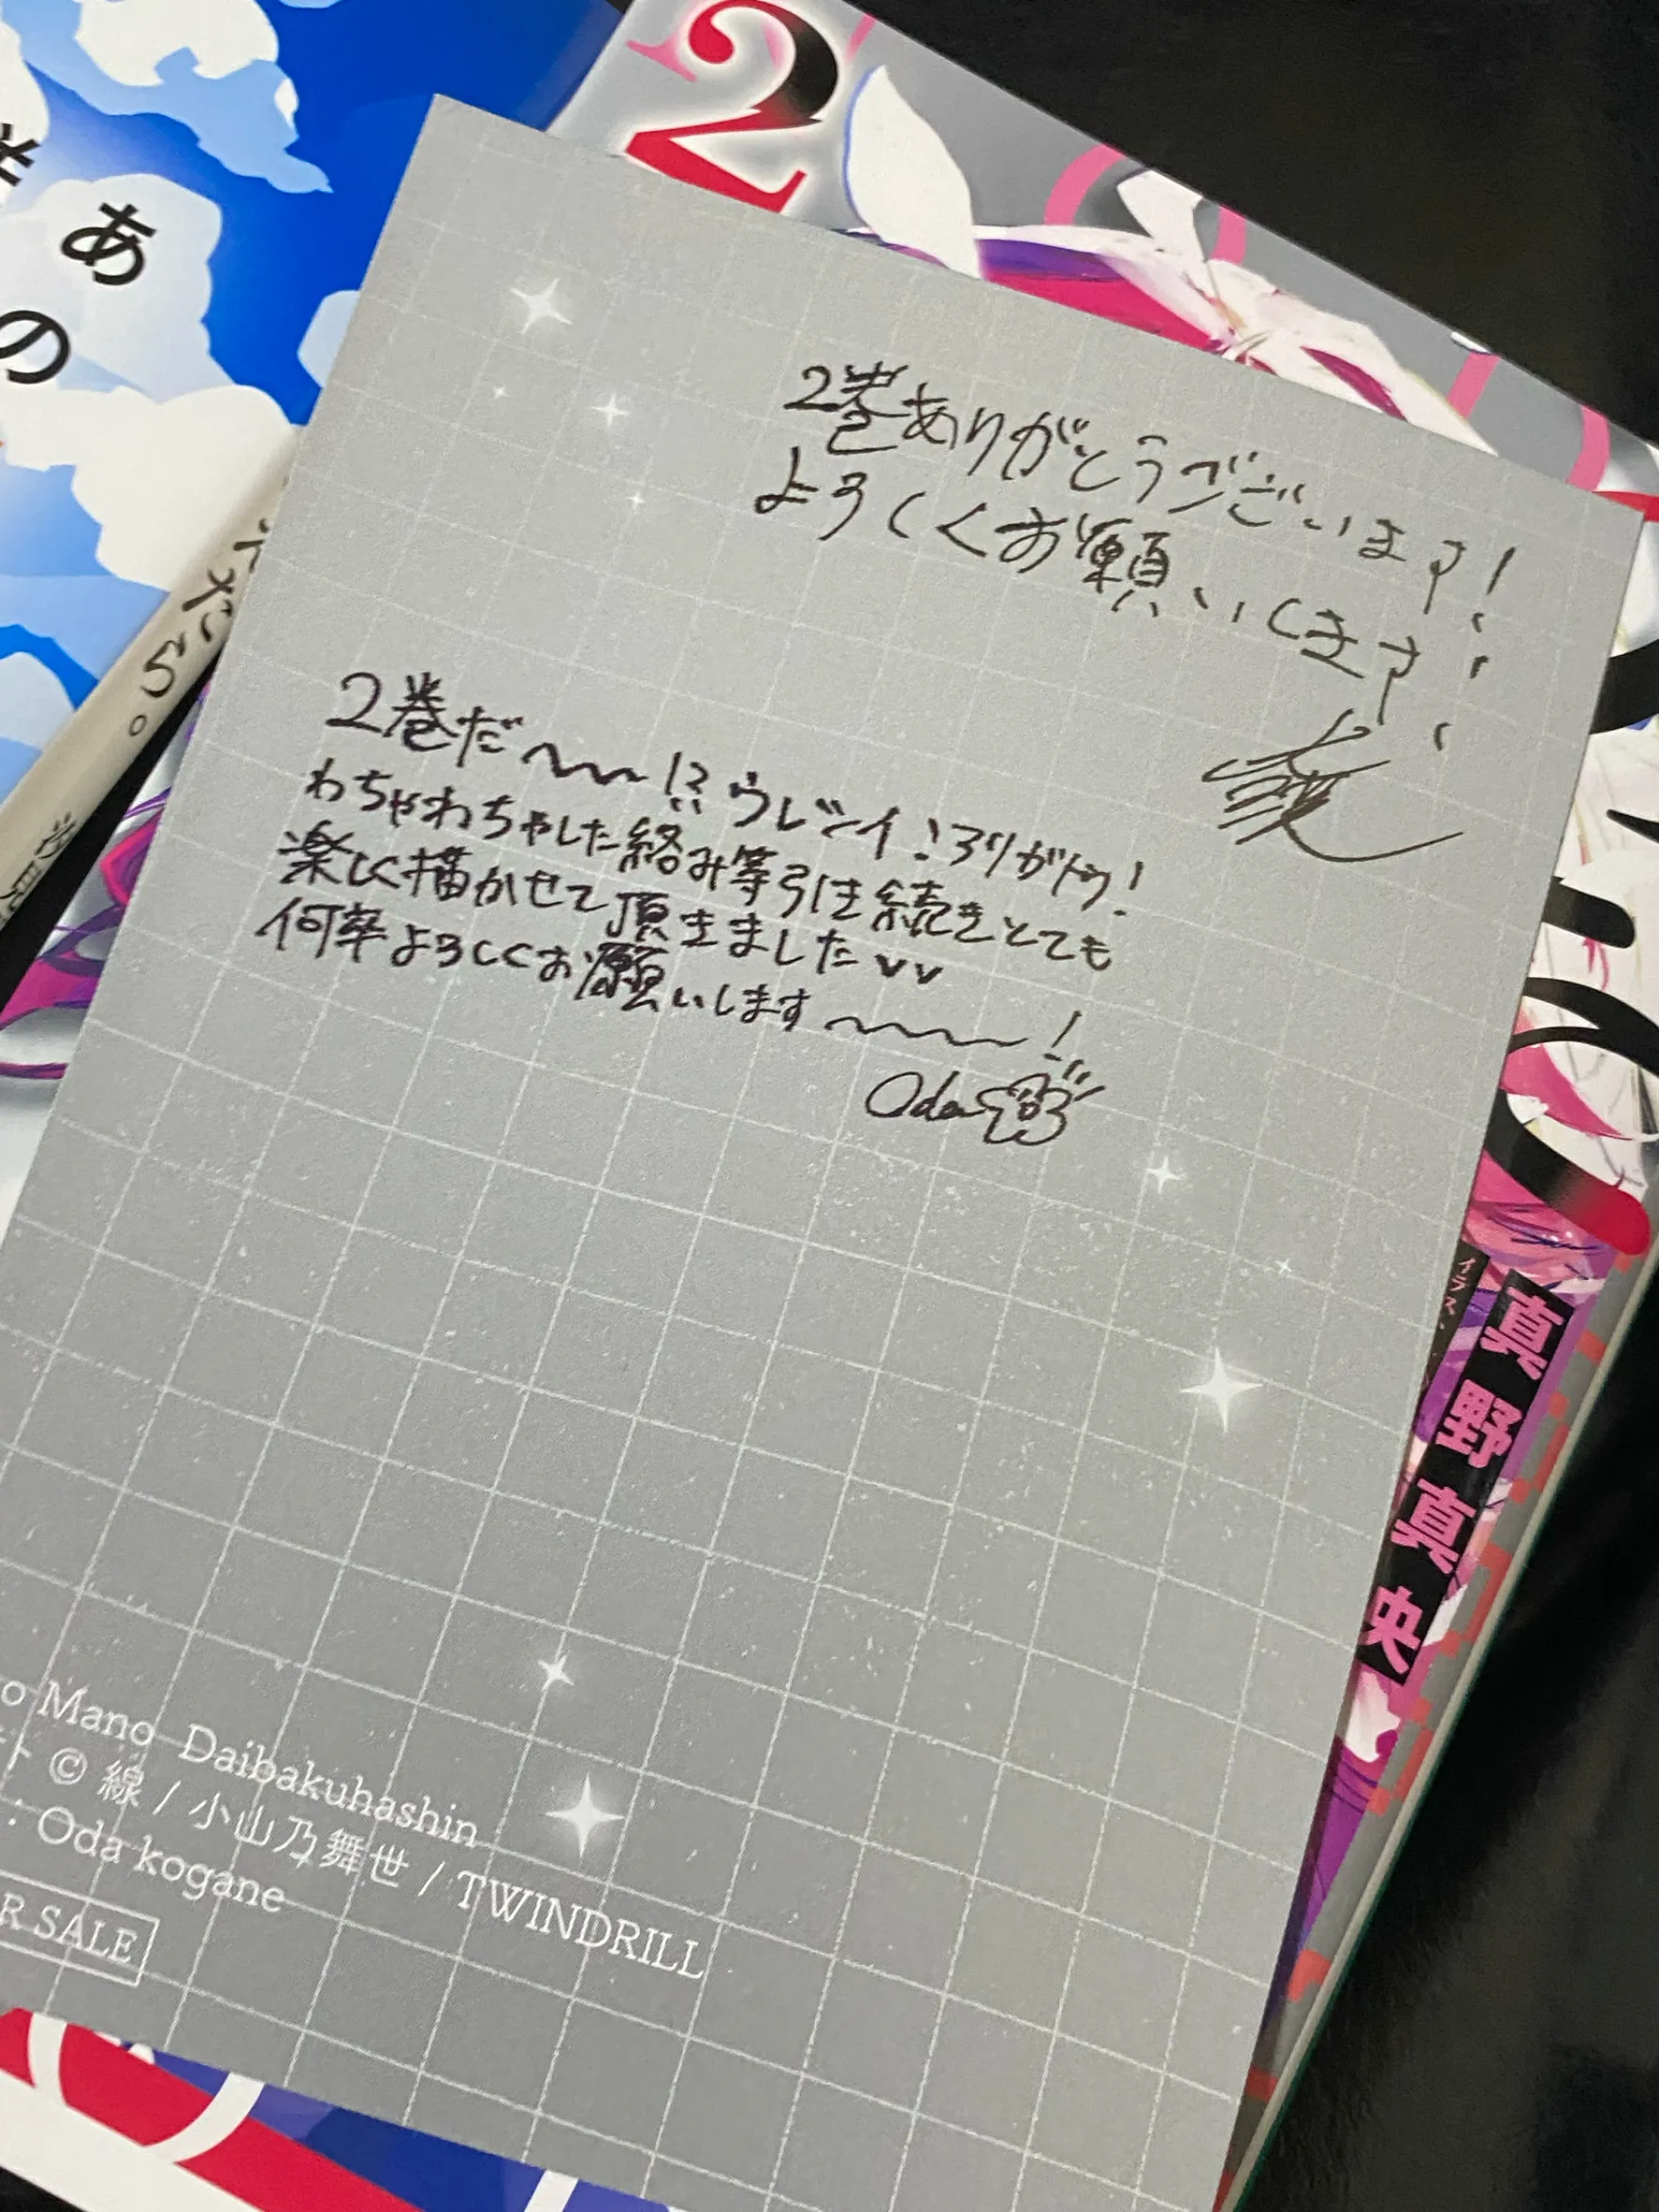 2
あ
の
だろ。
2巻ありがとうございます!
よろしくお願いします!
2巻だ〜〜!? ウレシイ!アリガトウ!
わちゃわちゃした絡み等引き続きとても
楽しく描かせて頂きましたvv
何卒よろしくお願いします〜〜!
Oda
イラスト
真野真央
o Mano Daibakuhashin
© 線 / 小山乃舞世 / TWINDRILL
: Oda kogane
R SALE